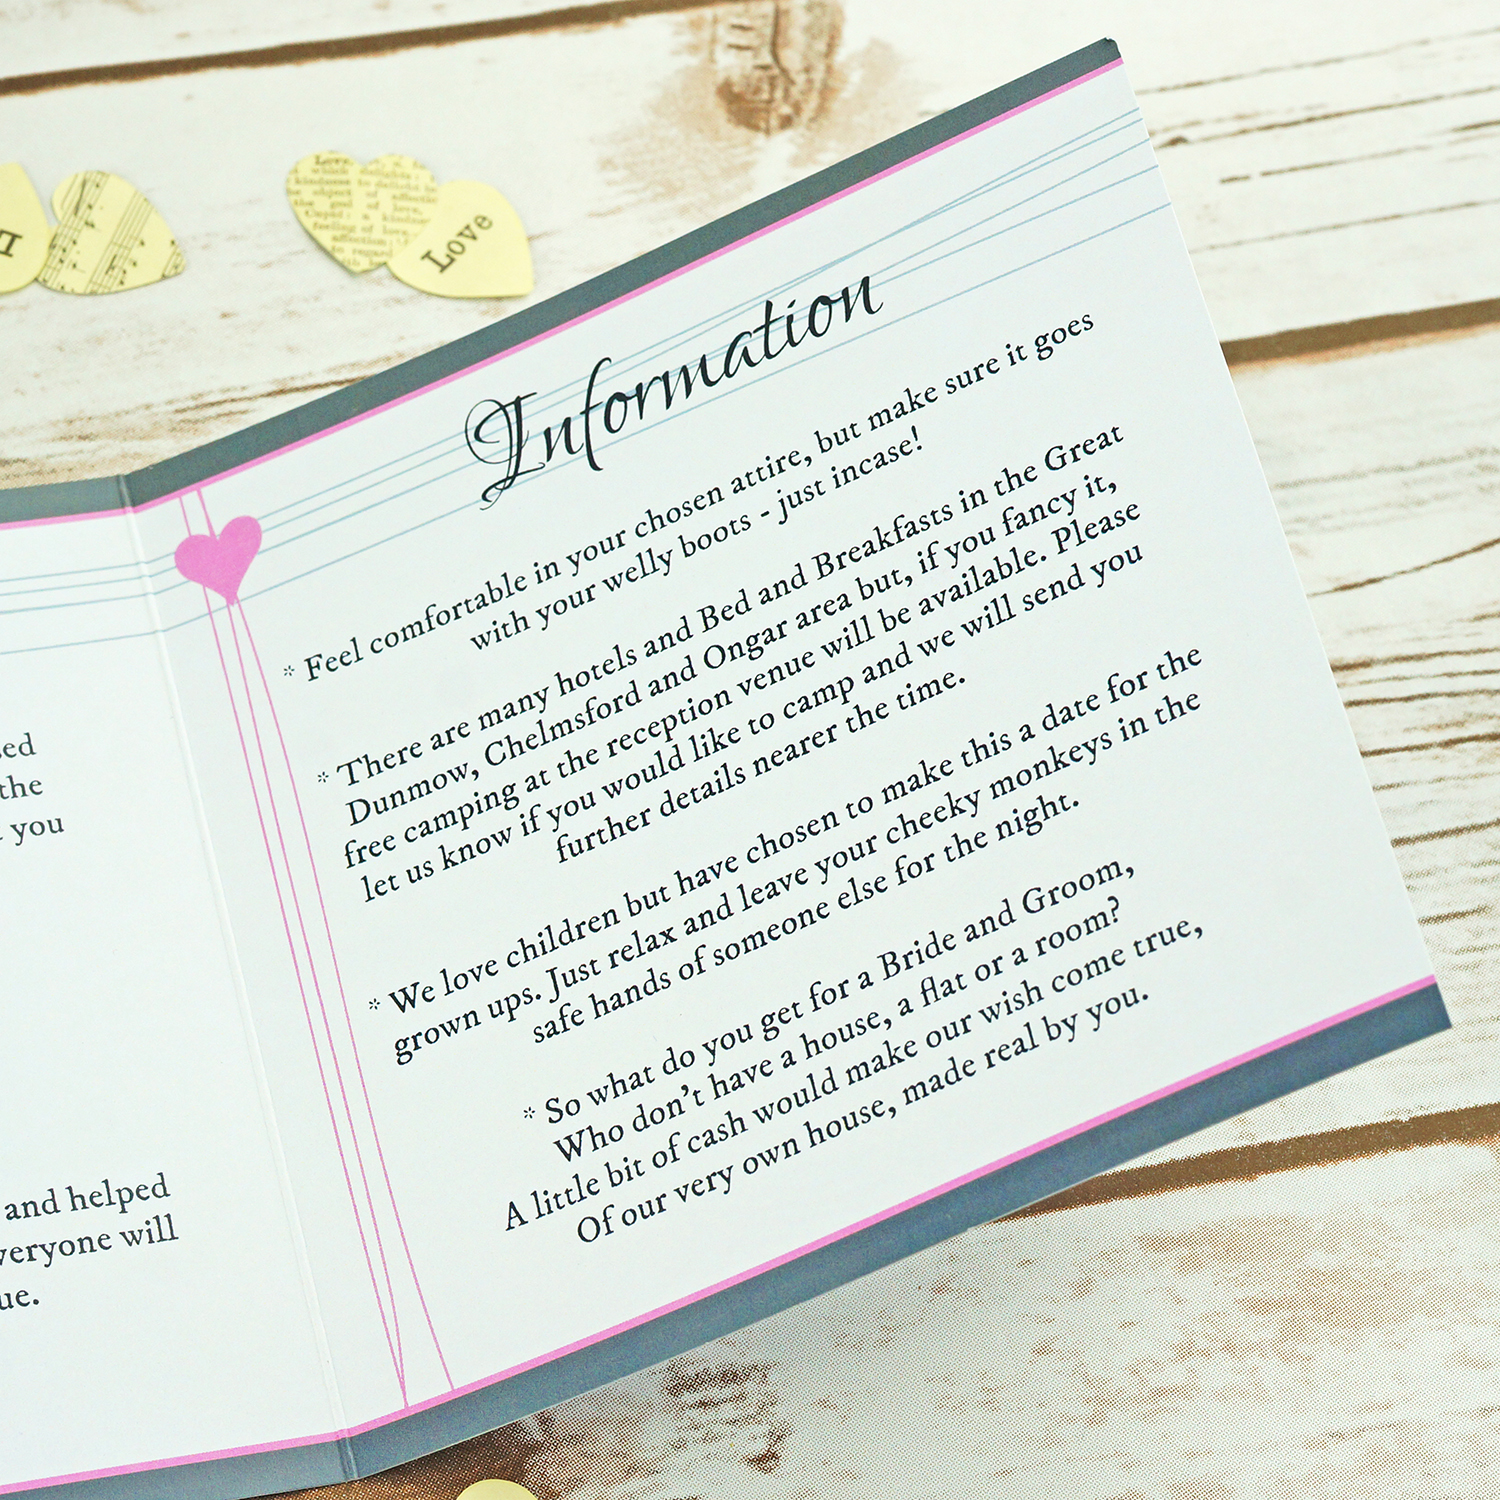 Love
Love,
which delights
kindness to delight
object of affectio
the god of love
Cupid: a kindne
feeling of love
affection
in regard
Information
* Feel comfortable in your chosen attire, but make sure it goes
with your welly boots - just incase!
* There are many hotels and Bed and Breakfasts in the Great
Dunmow, Chelmsford and Ongar area but, if you fancy it,
free camping at the reception venue will be available. Please
let us know if you would like to camp and we will send you
further details nearer the time.
* We love children but have chosen to make this a date for the
grown ups. Just relax and leave your cheeky monkeys in the
safe hands of someone else for the night.
* So what do you get for a Bride and Groom,
Who don't have a house, a flat or a room?
A little bit of cash would make our wish come true,
Of our very own house, made real by you.
sed
the
you
and helped
veryone will
ue.